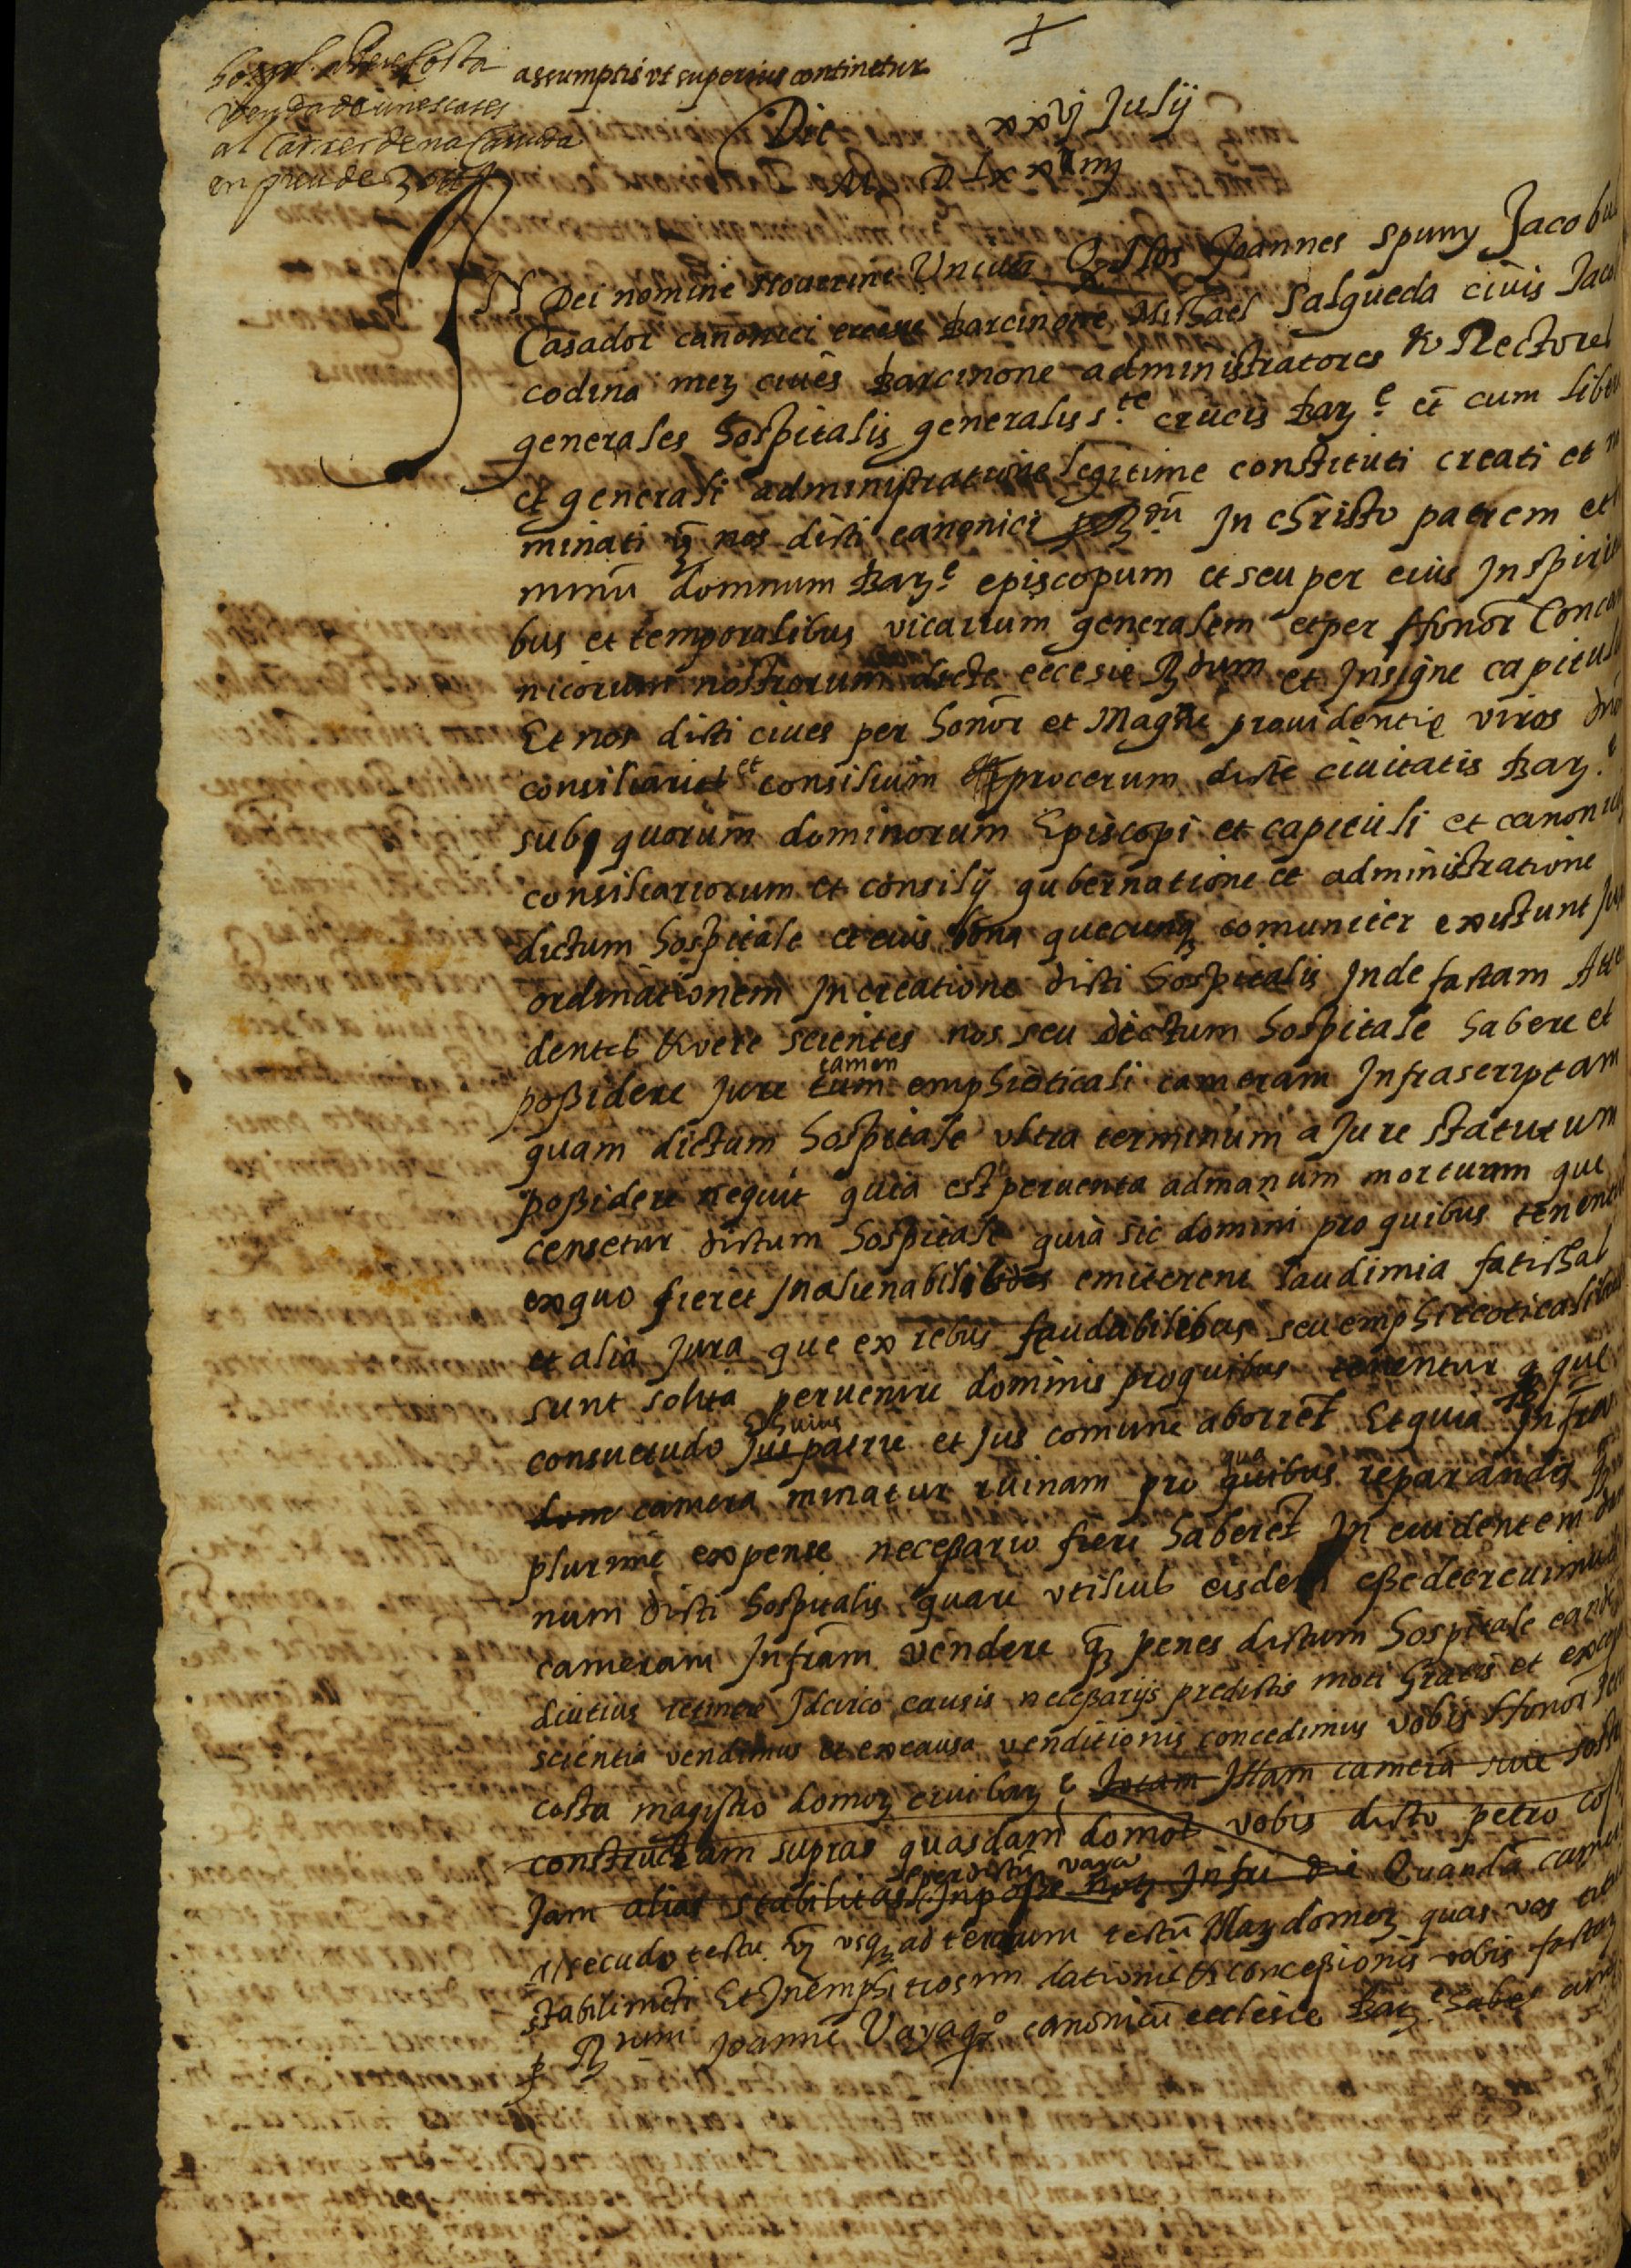 +
hospl. a Pere Costa
venda de unes cases
al carrer de na Canuda
en preu de
assumptis ut superius continetur
Die xxvj Julij
M D Lxx
IN Dei nomine Noverint Universi Q Nos Joannes Spuny Jacobus
Casador canonici ecclesie Barcinone Michael Salgueda civis Jacob
codina merz cives Barcinone administratores & Rectores
generales hospitalis generalis s.te crucis Barz.e et cum libera
et generali administratione legitime constituti creati et no
minati vz nos dicti canonici per Rdu In christo patrem et
minu domnum Barz.e episcopum et seu per eius In spiritua
bus et temporalibus vicarium generalem et per Honor Concan
nicorum nostrorum dicte eccesie Rdum et Insigne capitul
Et nos dicti cives per honor et Magce providentie viros dno
consiliarios et consilium procerum dicte civitatis Barz.e
sub quorum dominorum Episcopi et capituli et canonico
consiliariorum et consilij gubernatione et administratione
dictum hospitale et eius bona quecunqz comuniter existunt Jux
ordinationem In creatione dicti hospitalis Inde factam Atte
dentes & vere scientes nos seu dictum hospitale habere et
possidere Jure tum tamen emphiteticali cameram Infrascriptam
quam dictum hospitale ultra terminum a Jure statutum
possidere nequit quia est perventa ad manum mortuam que
censetur dictum hospitale quia sic domini pro quibus tenent
ex quo fieret Inalienabilis emiterent laudimia fatichas
et alia Jura que ex rebus feudabilibus seu emphiteoticalibus
sunt solita pervenire dominis pro quibus tenentur que
consuetudo Jus huius patrie et Jus comune aborret Et quia Infra
dom camera minatur ruinam pro quibus qua reparanda
plurime expense necessario fieri haberet In evidentem dam
num dicti hospitalis quare utilius eisdem esse decrevimus
cameram Infram vendere qz penes dictum hospitale eande
diutius retinere Idcirco causis necessarijs predictis moti Gratis et ex certa
scientia vendimus et ex causa venditionis concedimus vobis Honor Pet
costa magistro domorz civi Barz.e totam Illam camera sive
constructam supras quasdam domos vobis dicto petro cost
Jam alias stabilitas per dictu vaya In posse Infri die Quanda camer
A secudo tectu vz usqz ad tercium tectu Illarz domorz quas vos titu
stabilimeti Et In emphiteosim dationis & concessionis vobis factarz
p Rdum Joanne Vaya qo canonicu ecclesie Barz.e habes